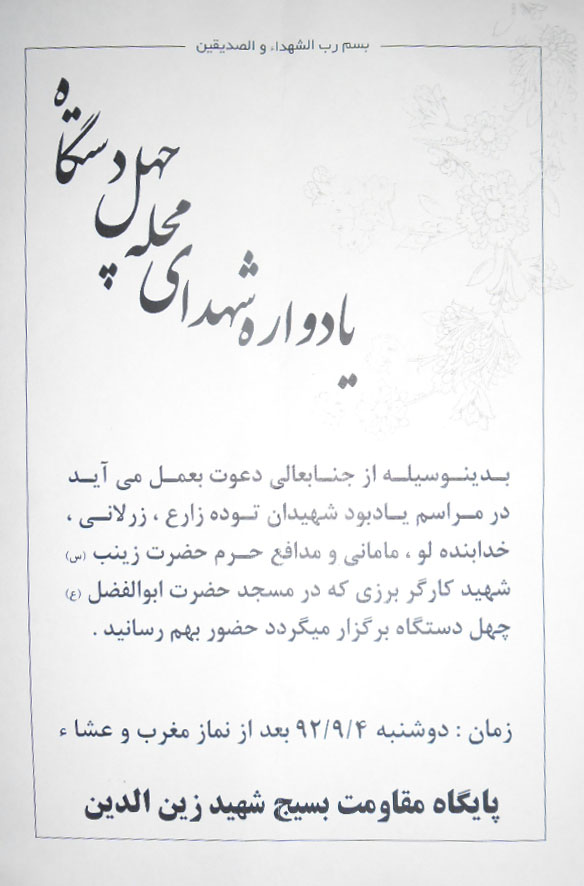 بسم رب الشهداء و الصدیقین
یادواره شهدای محله چهل دستگاه
بدینوسیله از جنابعالی دعوت بعمل می آید
در مراسم یادبود شهیدان توده زارع ، زرلانی ،
خدابنده لو ، مامانی و مدافع حرم حضرت زینب (س)
شهید کارگر برزی که در مسجد حضرت ابوالفضل (ع)
چهل دستگاه برگزار میگردد حضور بهم رسانید .
زمان : دوشنبه ۹۲/۹/۴ بعد از نماز مغرب و عشاء
پایگاه مقاومت بسیج شهید زین الدین